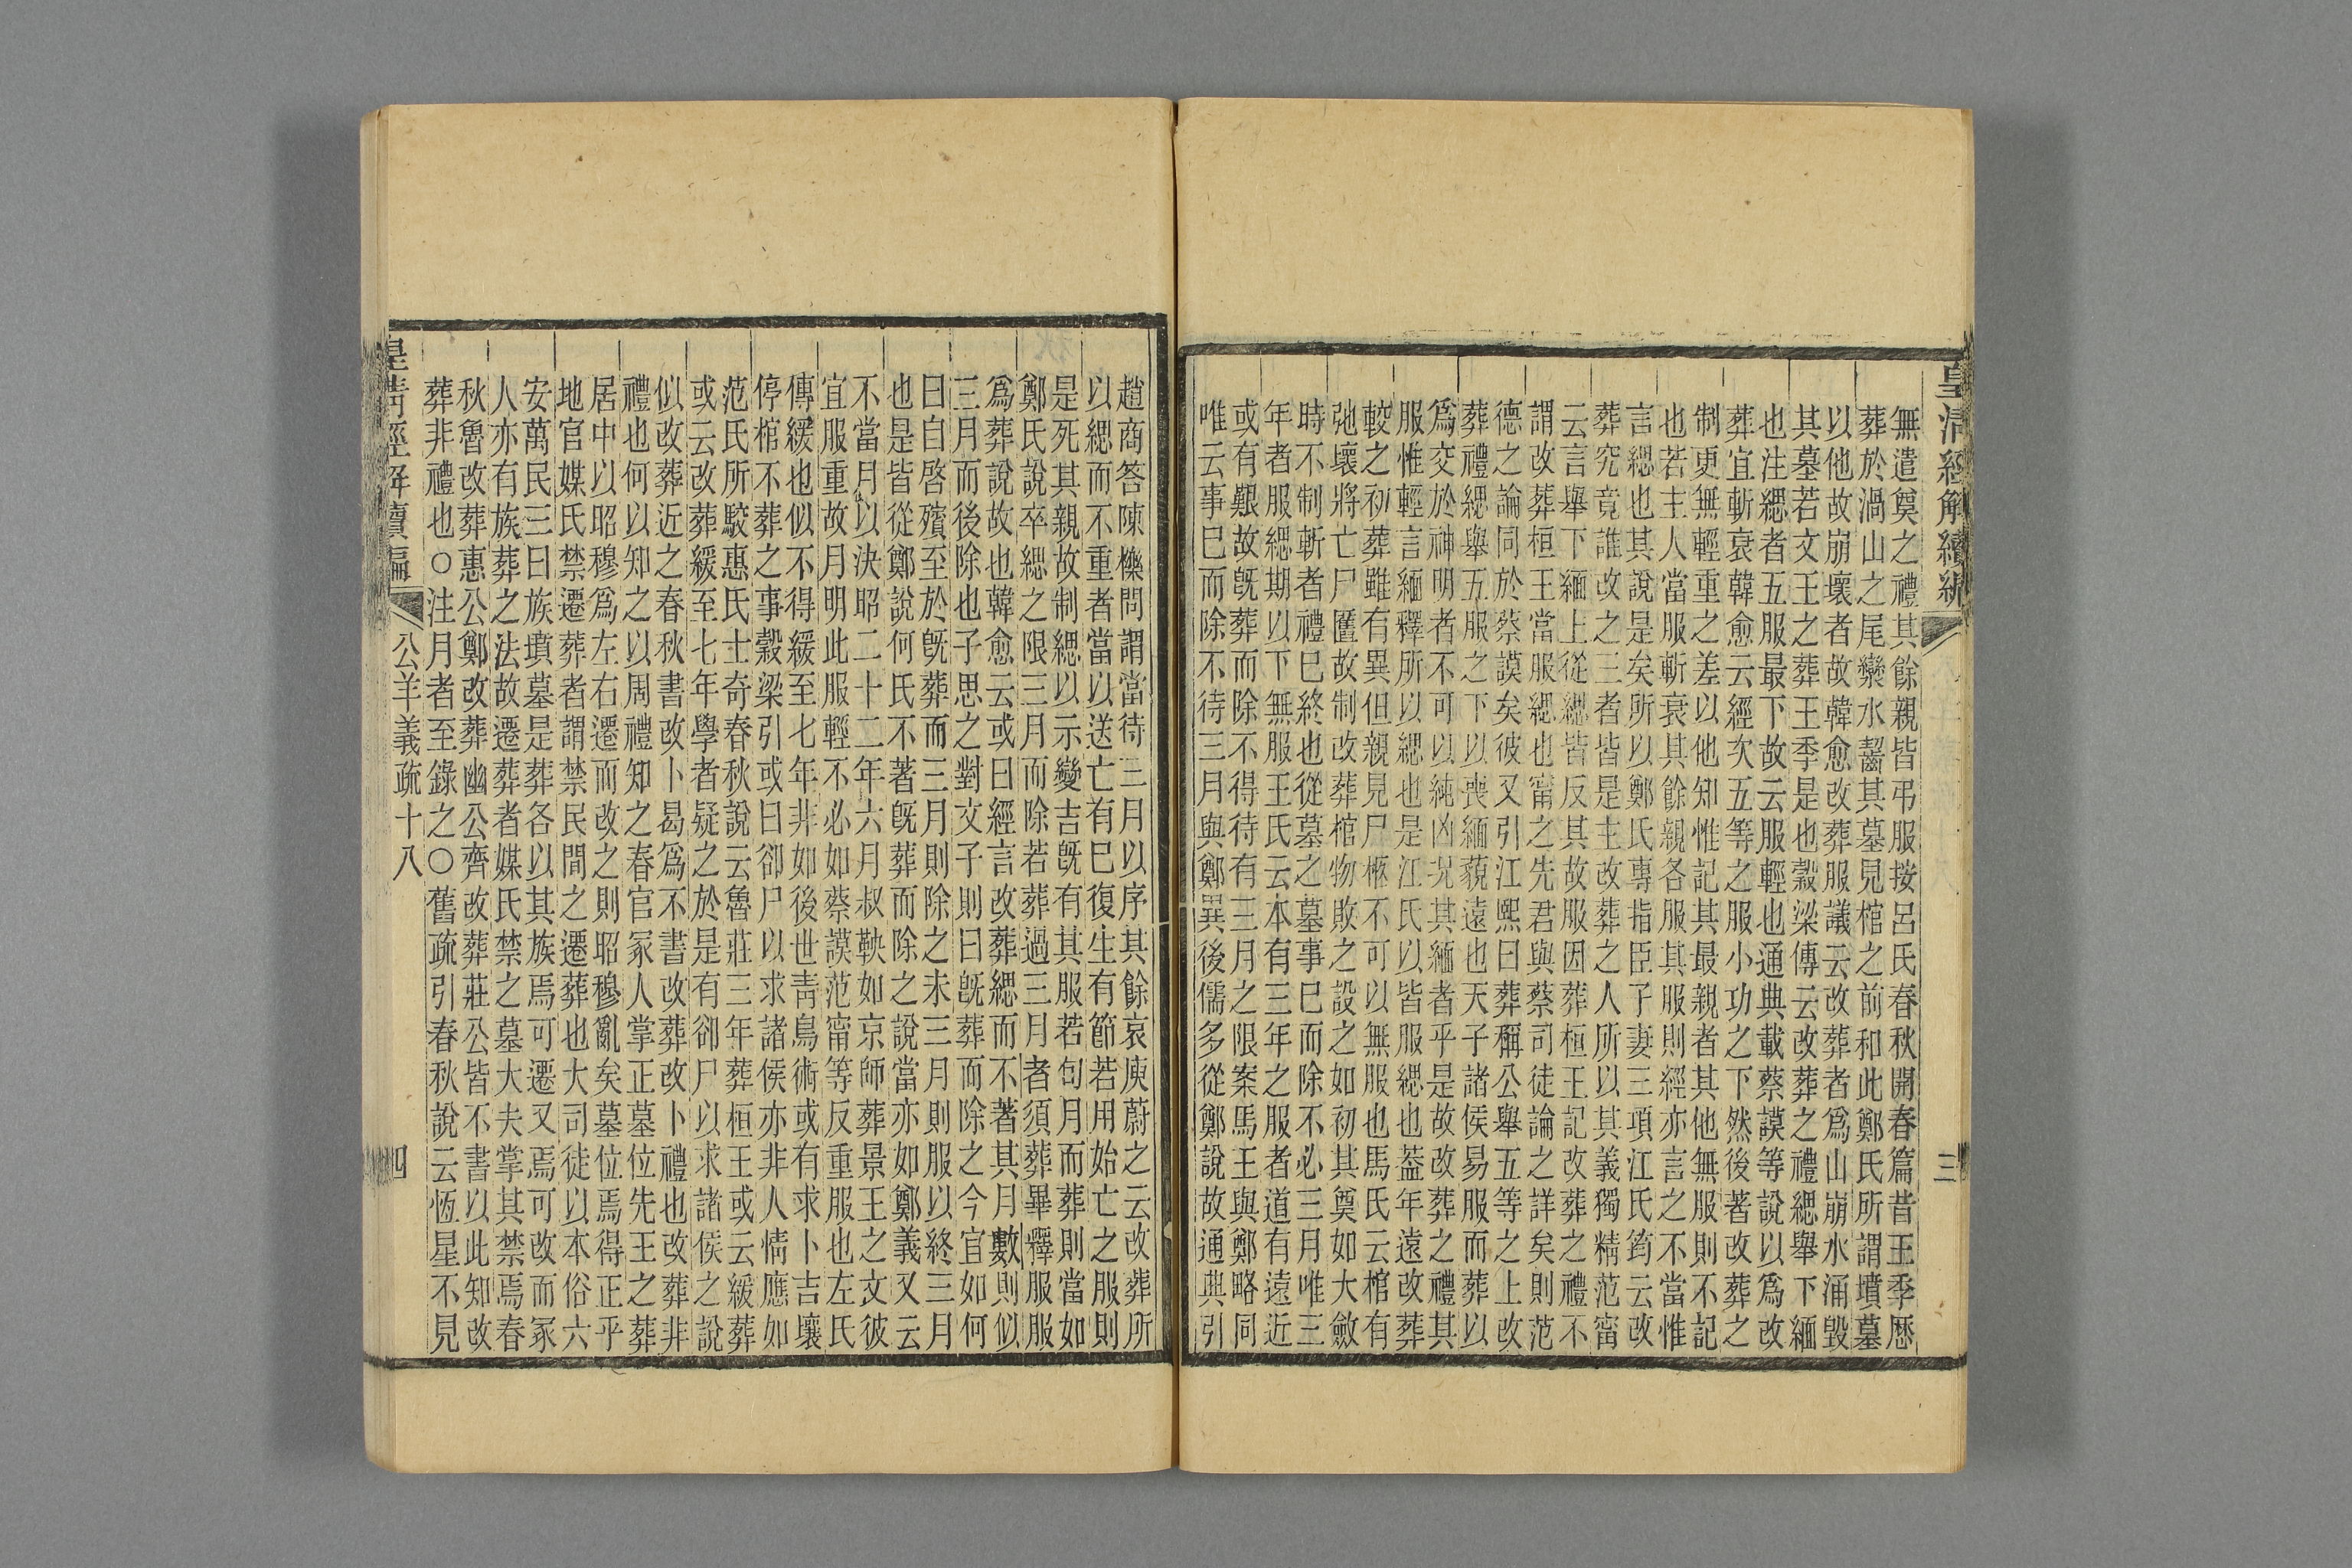 皇清經解續編 三
無遣奠之禮其餘親皆弔服按呂氏春秋開春篇昔王季歷
葬於渦山之尾欒水齧其墓見棺之前和此鄭氏所謂墳墓
以他故崩壞者故韓愈改葬服議云改葬者爲山崩水涌毀
其墓若文王之葬王季是也穀梁傳云改葬之禮緦舉下緬
也注緦者五服最下故云服輕也通典載蔡謨等說以爲改
葬宜斬衰韓愈云經次五等之服小功之下然後著改葬之
制更無輕重之差以他知惟記其最親者其他無服則不記
也若主人當服斬衰其餘親各服其服則經亦言之不當惟
言緦也其說是矣所以鄭氏專指臣子妻三項江氏筠云改
葬究竟誰改之三者皆是主改葬之人所以其義獨精范甯
云言舉下緬上從緦皆反其故服因葬桓王記改葬之禮不
謂改葬桓王當服緦也甯之先君與蔡司徒論之詳矣則范
德之論同於蔡謨矣彼又引江熙曰葬稱公舉五等之上改
葬禮緦舉五服之下以喪緬藐遠也天子諸侯易服而葬以
爲交於神明者不可以純凶况其緬者乎是故改葬之禮其
服惟輕言緬釋所以緦也是江氏以皆服緦也葢年遠改葬
較之初葬雖有異但親見尸柩不可以無服也馬氏云棺有
弛壞將亡尸匶故制改葬棺物敗之設之如初其奠如大斂
時不制斬者禮巳終也從墓之墓事巳而除不必三月唯三
年者服緦期以下無服王氏云本有三年之服者道有遠近
或有艱故旣葬而除不得待有三月之限案馬王與鄭略同
唯云事巳而除不待三月與鄭異後儒多從鄭說故通典引
趙商答陳櫟問謂當待三月以序其餘哀庾蔚之云改葬所
以緦而不重者當以送亡有巳復生有節若用始亡之服則
是死其親故制緦以示變吉旣有其服若句月而葬則當如
鄭氏說卒緦之限三月而除若葬過三月者須葬畢釋服服
爲葬說故也韓愈云或曰經言改葬緦而不著其月數則似
三月而後除也子思之對文子則曰旣葬而除之今宜如何
曰自啓殯至於旣葬而三月則除之未三月則服以終三月
也是皆從鄭說何氏不著旣葬而除之說當亦如鄭義又云
不當月以決昭二十二年六月叔鞅如京師葬景王之文彼
宜服重故月明此服輕不必如蔡謨范甯等反重服也左氏
傳緩也似不得緩至七年非如後世靑鳥術或有求卜吉壤
停棺不葬之事穀梁引或曰卻尸以求諸侯亦非人情應如
范氏所駮惠氏士奇春秋說云魯莊三年葬桓王或云緩葬
或云改葬緩至七年學者疑之於是有卻尸以求諸侯之說
似改葬近之春秋書改卜曷爲不書改葬改卜禮也改葬非
禮也何以知之以周禮知之春官冢人掌正墓位先王之葬
居中以昭穆爲左右遷而改之則昭穆亂矣墓位焉得正乎
地官媒氏禁遷葬者謂禁民間之遷葬也大司徒以本俗六
安萬民三曰族墳墓是葬各以其族焉可遷又焉可改而冢
人亦有族葬之法故遷葬者媒氏禁之墓大夫掌其禁焉春
秋魯改葬惠公鄭改葬幽公齊改葬莊公皆不書以此知改
葬非禮也○注月者至錄之○舊疏引春秋說云恆星不見
皇清經解續編 公羊義疏十八 四